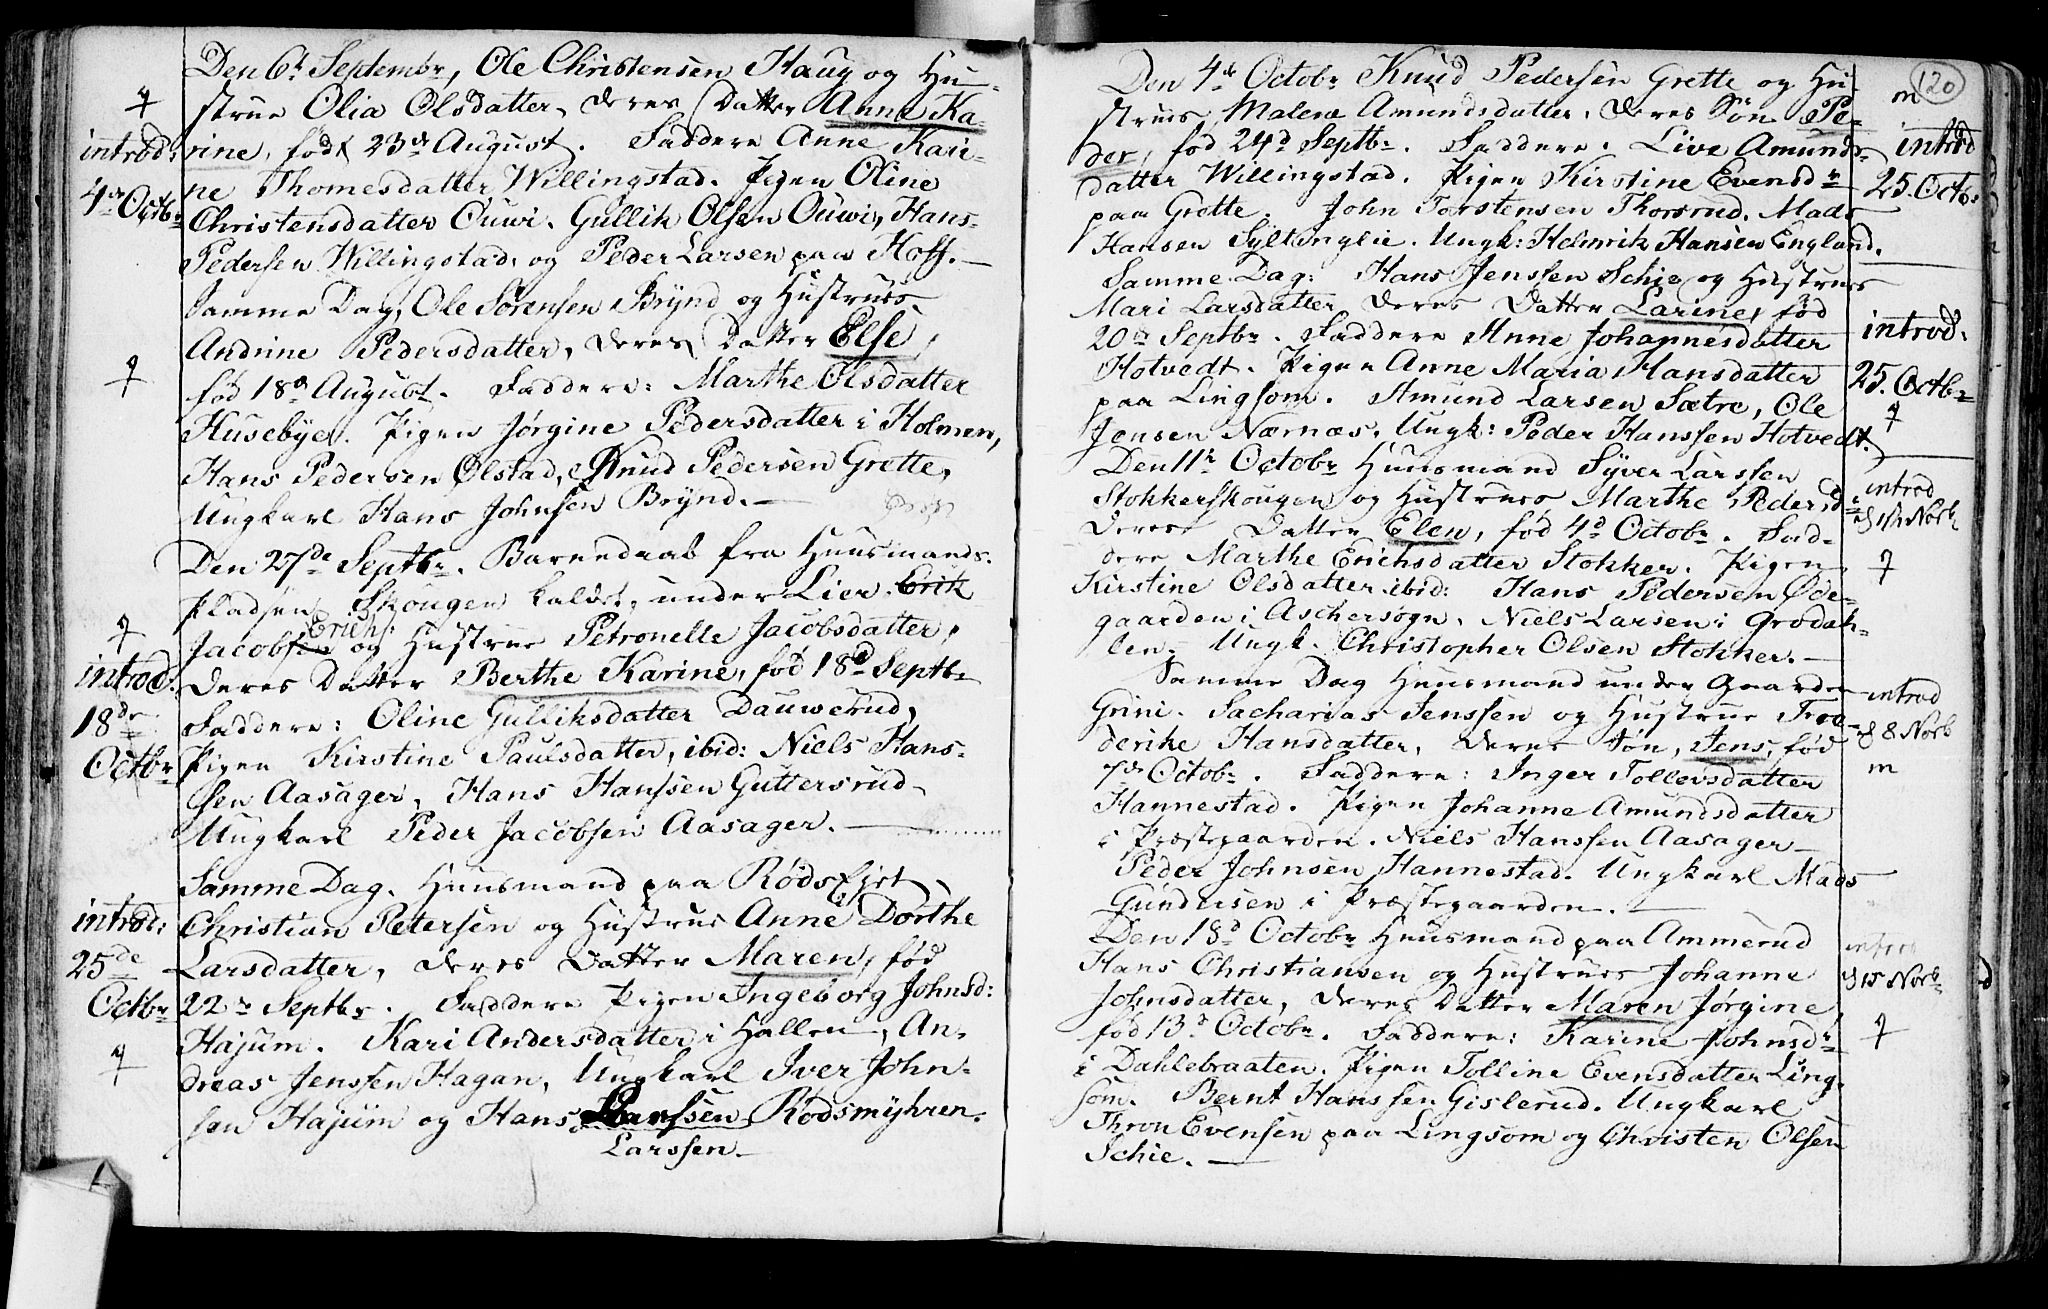 Den 6t Septembr, Ole Christensen Haug og Hu-
strue Olia Olsdatter, deres Datter Anne Ka-
introd: rine, født 23de August. Faddere Anne Kari-
4de Octbr ne Thomesdatter Willingstad. Pigen Oline
Christensdatter Ouwi. Gullik Olsen Ouwi, Hans
Pedersen Willingstad, og Peder Larsen paa Hoff.
Samme Dag, Ole Sørensen Brÿnd og Hustrues
Andrine Pedersdatter, deres Datter Else,
fød 18d August. Faddere: Marthe Olsdatter
Husebye. Pigen Jørgine Pedersdatter i Holmen,
Hans Pedersen Ølstad, Knud Pedersen Grette,
Ungkarl Hans Johnsen Brÿnd.
Den 27de Septbr. Barnedaab fra Huusmands-
Pladsen Skougen kaldet, under Lier. Erik
Erichs:
Jacobsen og Hustrue Petronelle Jacobsdatter,
introd: deres Datter Berthe Karine, fød 18d Septbr
18de Faddere: Oline Gulliksdatter Dauwerud,
Octbr Pigen Kirstine Paulsdatter, ibid: Niels Hans-
sen Aasager, Hans Hanssen Guttersrud,
Ungkarl Peder Jacobsen Aasager.
Samme Dag. Huusmand paa Røds Ejet,
introd: Christian Petersen og Hustrue Anne Dorthe
25de Larsdatter, deres Datter Maren, fød
Octbr 22de Septbr. Faddere Pigen Ingeborg Johnsd:
Hajum. Kari Andersdatter i Hallen, An-
dreas Jenssen Hagan, Ungkarl Iver John-
sen Hajum og Hans Larssen Rødsmÿhren.
Larssen.
120
Den 4de Octobr Knud Pedersen Grette og Hu- m
strues Malene Amundsdatter, deres Søn Pe- introd
der, fød 24d Septbr. Faddere. Live Amunds-
datter Willingstad. Pigen Kirstine Evensdr 25. Octb:
paa Grette. John Torstensen Thorsrud. Mads
Hansen Sÿltinglie. Ungk: Helmrik Hansen England.
Samme Dag: Hans Jenssen Schie og Hustrues
Mari Larsdatter deres Datter Larine, fød
20d Septbr. Faddere Anne Johannesdatter introd:
Hotvedt. Pigen Anne Maria Hansdatter 25. Octbr
paa Lingsom. Amund Larsen Sætre, Ole
Jensen Nærnæs. Ungk: Peder Hanssen Hotvedt.
Den 11te Octobr Huusmand Sÿver Larssen
Stokkerskougen og Hustrues Marthe Pedersd introd
deres Datter Elen, fød 4d Octobr. Fad-
dere Marthe Erichsdatter Stokker. Pigen
Kirstine Olsdatter ibid: Hans Pedersen Øde-
gaarden i Aschersogn. Niels Larsen i Grodah-
len. Ungk. Christopher Olsen Stokker.
Samme Dag Huusmand under Gaarden introd
Grini. Sacharias Jenssen og Hustrue Fre-
derike Hansdatter, deres Søn, Jens, fød d 8 Novb
7de Octobr. Faddere: Inger Tollevsdatter m
Hannestad. Pigen Johanne Amundsdatter
i Præstegaarden. Niels Hanssen Aasager
Peder Johnsen Hannestad. Ungkarl Mads
Gundersen i Præstegaarden.
Den 18d Octobr Huusmand paa Ammerud
Hans Christiansen og Hustrues Johanne introd
Johnsdatter, deres Datter Maren Jørgine, d 15 Novb
fød 13d Octobr. Faddere: Karine Johnsdr
i Dahlebraaten. Pigen Tolline Evensdatter Ling-
som. Bernt Hanssen Gislerud. Ungkarl
Thron Evensen paa Lingsom og Christen Olsen
Schie.